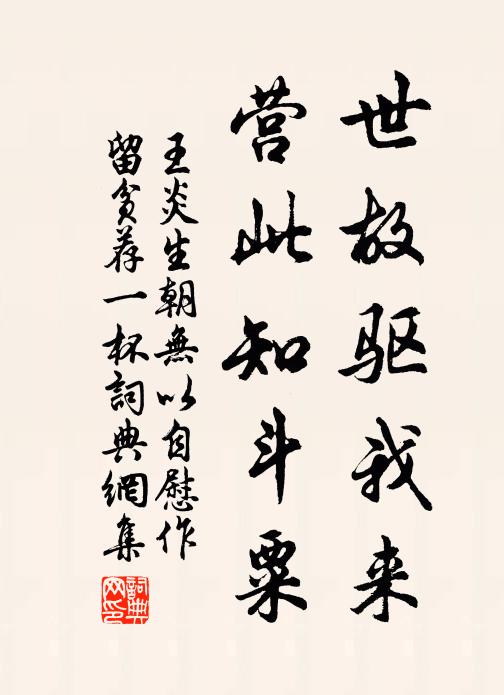 世故驱我来
营此知斗粟
王炎生朝無以自慰作
留貧荐一杯詞典網集
詞典网印